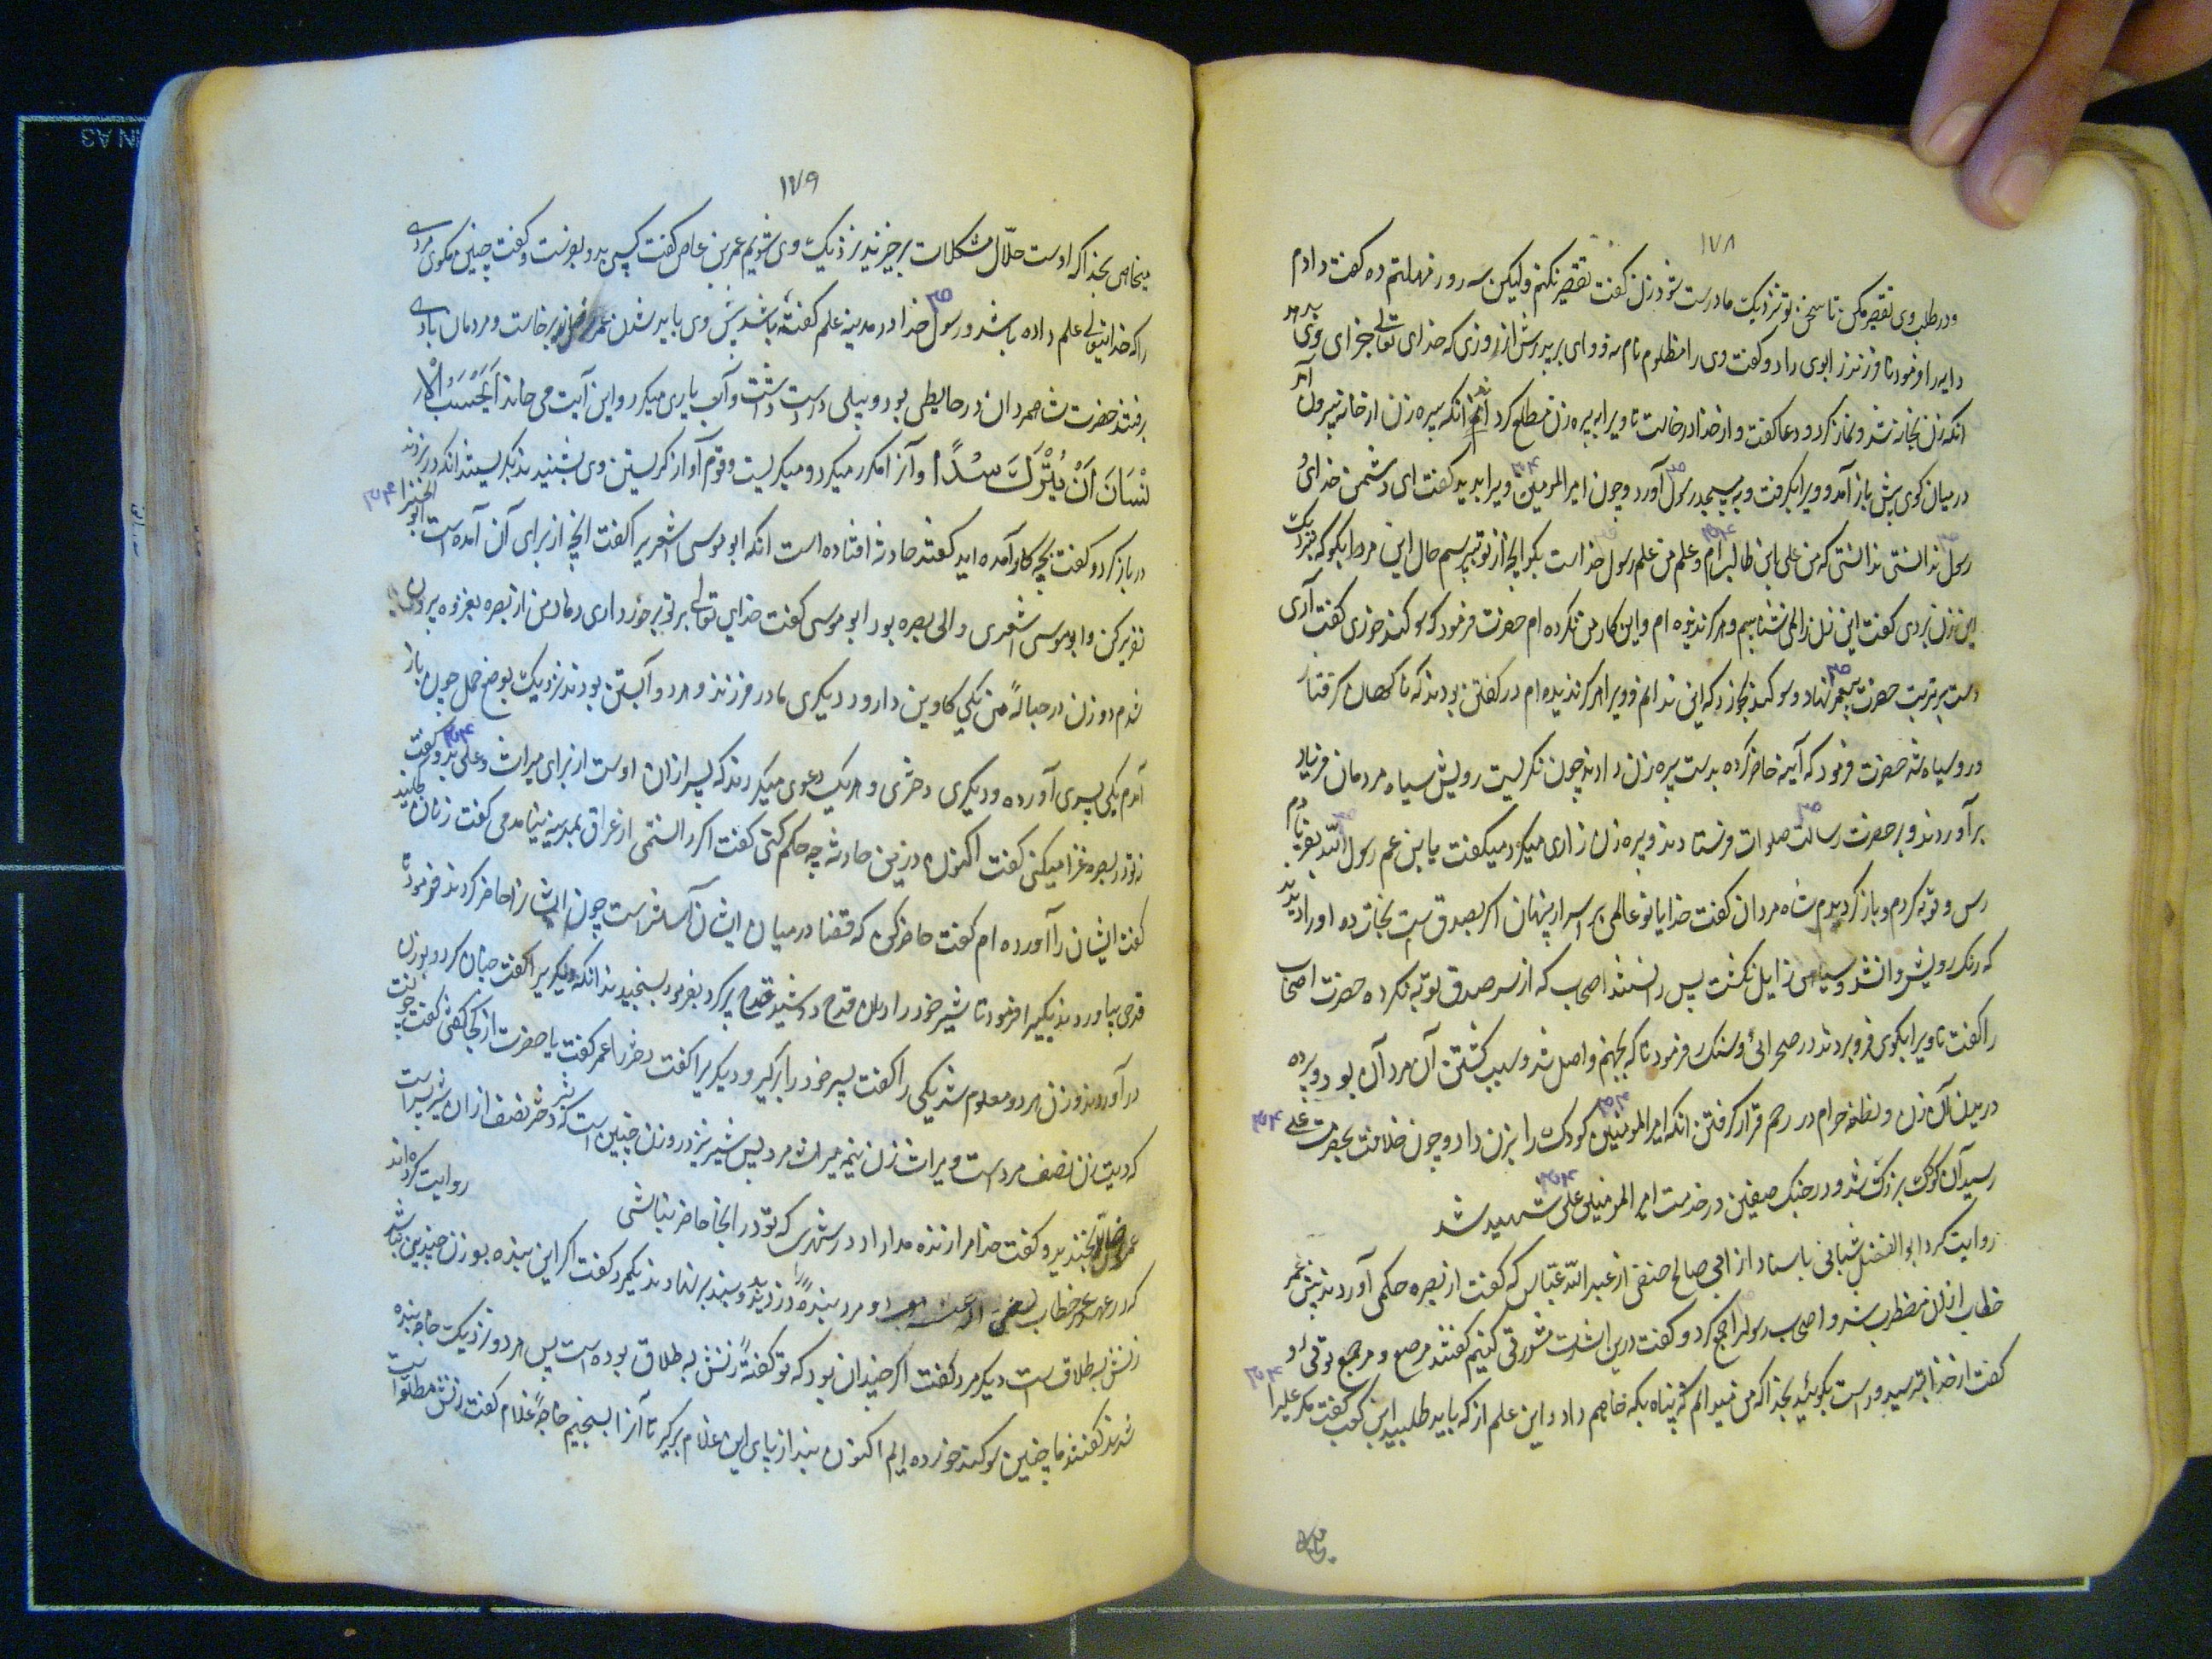 ۱۷۸
ودر طلب وی تقصیر مکن تا سخن تو نزدیک ما درست شود زن گفت تقصیر نکنم ولیکن سه روز مهلتم ده گفت دادم
دایه را فرمود تا فرزند ابوی داد و گفت وی را مظلوم نام نه و وای بر پدرش از روزی که خدای تعالی جزای وی دهد
انکه زن بخانه شد و نماز کرد و دعا گفت و از خدا درخواست تا ویرا به پیره زن مطلع کرد انکه پیره زن از خانه بیرون آمد
در میان کوی پیش باز آمد و ویرا بگرفت و به مسجد رسول آورد و چون امیر المومنین ویرا بدید گفت ای دشمن خدای و
رسول ندانستی ندانستی که من علی بن ابی طالب ام و علم من علم رسول خداست بگو انچه از تو بپرسم حال این مرد را بگو که بنزدیک
این زن بردی گفت این زن را نمی شناسم و هرگز ندیده ام و این کار من نکرده ام حضرت فرمود که سوگند خوری گفت آری
دست بر تربت حضرت پیغمبر نهاد و سوگند بخورد که این ندانم و ویرا هرگز ندیده ام در گفتن بودند که ناگهان گرفتار
و رو سیاه شد حضرت فرمود که آینه حاضر کرده بدست پیره زن دادند چون نگریست رویش سیاه مردمان فریاد
برآوردند و بر حضرت رسالت صلوات فرستادند و پیره زن زاری میکرد میگفت یا بن عم رسول الله بفریادم
رس و توبه کردم و باز گردیدم شاه مردان گفت خدایا تو عالمی بر اسرار پنهان اگر بصدق است نجات ده او را دیدند
که رنگ رویش وا نشد و سیاهی زایل نگشت پس دانستند اصحاب که از سر صدق توبه نکرده حضرت اصحاب
را گفت تا ویرا بکوی فرو بردند در صحرائی و سنگ فرمود تا که بجهنم واصل شد و سبب کشتن آن مرد آن بود و پرده
دریدن آن زن و نطفه حرام در رحم قرار گرفتن انکه امیر المومنین کودک را بزن داد و چون خلافت بحضرت علی
رسید آن کودک بزرگ شد و در جنگ صفین در خدمت امیر المومنین علی شهید شد
روایت کرد ابو الفضل شیبانی باسناد از ابی صالح حنفی از عبد الله عباس که گفت از بصره حکمی آوردند پیش عمر
خطاب از آن مضطرب شد و اصحاب رسول را جمع کرد و گفت درین اشارت مشورتی کنیم گفتند مرجع و مرجع توئی او
گفت از خدا بترسید و راست بگوئید بخدا که من نمیدانم که پناه بکه خواهم داد و این علم از که باید طلبید ابن کعب گفت مگر علی را
۱۷۹
میخواهی بخدا که اوست حلال مشکلات برخیزید نزدیک وی شویم عمر بن عاص گفت کسی بدو باید فرست و گفت چنین مگوی مردی
را که خدایتعالی علم داده باشد و رسول خدا در مدینه علم گفته باشد پیش وی باید شدن عمر برخاست و مردمان با وی
رفتند حضرت شاه مردان در حایطی بود و بیلی در دست داشت و آب یاری میکرد و این آیت می خواند اَیَحْسَبُ الْاِ
نْسَانَ اَنْ یُتْرَکَ سُدًا و آنرا مکرر میکرد و میگریست و قوم آواز گریستن وی بشنیدند بگریستند انکه در بزدند
در باز کرد و گفت بچه کار آمده اید گفتند حادثه افتاده است انکه ابو موسی اشعری را گفت انچه از برای آن آمده است
تقریر کن و ابو موسی اشعری والی بصره بود ابو موسی گفت خدای تعالی بر تو برخورداری دهاد من از بصره بغزوه بیرون
شدم دو زن در حباله من یکی کاوین دارد و دیگری مادر فرزند و هر دو آبستن بودند نزدیک بوضع حمل چون باز
آمدم یکی پسری آورده و دیگری دختری و هر یک دعوی میکردند که پسر از آن اوست از برای میراث و علی بدو گفت
تو در بصره غزا میکنی گفت اکنون درین حادثه چه حکم کنی گفت اگر دانستمی از عراق بمدینه نیامدمی گفت زنان
گفت ایشان را آورده ام گفت حاضر کن که قضا در میان ایشان آسانست چون ایشان را حاضر کردند فرمود تا
قدحی بیاوردند یکی را فرمود تا شیر خود را در آن قدح دوشید قدح پر کرد بفرمود بسنجیدند انکه دیگری را گفت چنان کرد و بوزن
در آوردند وزن هر دو معلوم شد یکی را گفت پسر خود را برگیر و دیگری را گفت دختر را عمر گفت یا حضرت از کجا گفتی گفت
که دیت زن نصف مرد است و میراث زن نیمه میراث مرد پس شیر نیز در وزن چنین است که شیر دختر نصف از آن شیر پسر است
عمر بخندید و گفت خدا مرا زنده مداراد در شهری که تو در انجا حاضر نباشی روایت کرده اند
که در عهد عمر خطاب دو مرد بندهٔ را دزدید و بند بر نهادند یکمرد گفت اگر این بنده بوزن چندین نباشد
زنش به طلاق است دیگر مرد گفت اگر چندان بود که تو گفتهٔ زنش به طلاق بوده است پس هر دو نزدیک خاجه بنده
شدند گفتند ما چنین سوگند خورده ایم اکنون بند از پای این غلام برگیر تا آنرا بسنجیم خاجهٔ غلام گفت زنش مطلقه است